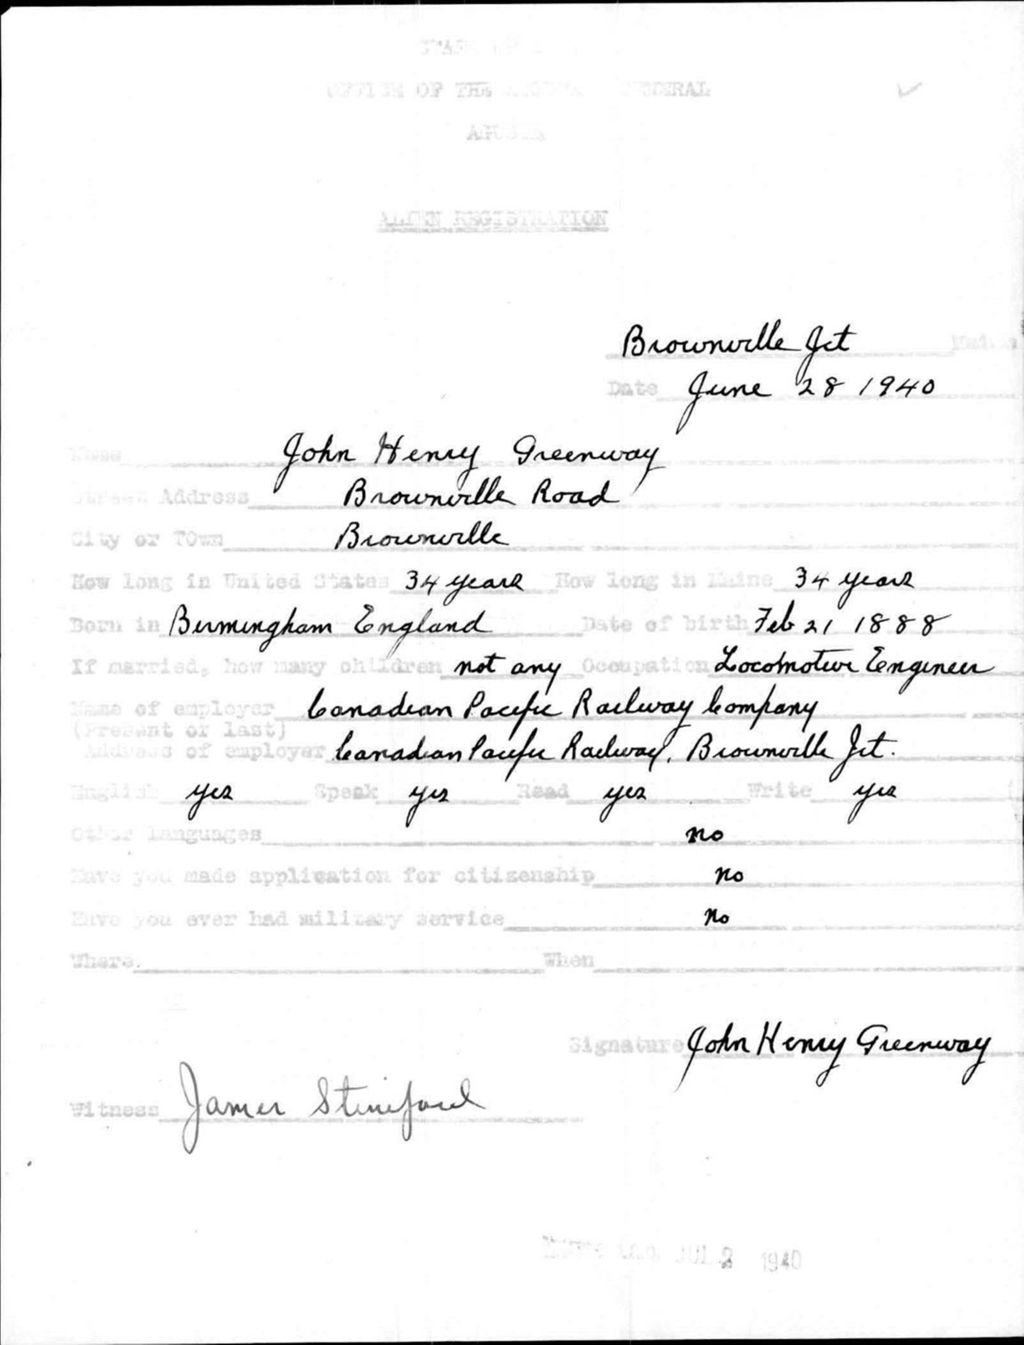 OFFICE OF THE GENERAL
AUGUSTA
ALIEN REGISTRATION
Brownville Jct Maine
Date June 28 1940
Name John Henry Greenway
Street Address Brownville Road
City or TOwn Brownville
How long in United States 34 years How long in Maine 34 years
Born in Birmingham England Date of birth Feb 21 1888
If married, how many children not any Occupation Locomotive Engineer
Name of employer Canadian Pacific Railway Company
(Present or last)
Address of employer Canadian Pacific Railway, Brownville Jct.
English yes Speak yes Read yes Write yes
Other languages no
Have you made application for citizenship no
Have you ever had military service no
Where When
Signature John Henry Greenway
Witness James
JUL 2 1940